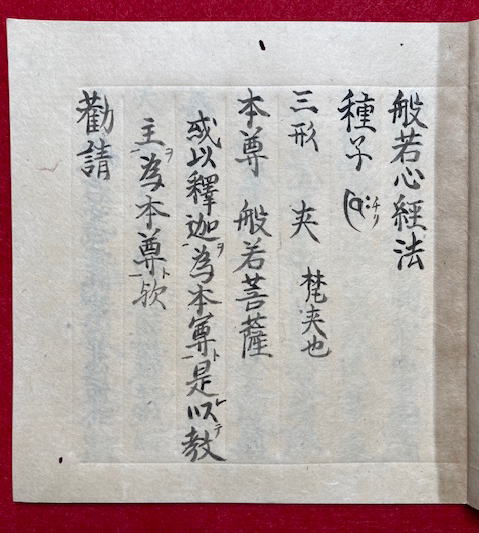 般若心經法
種子 チリ
三形 夾 梵夾也
本尊 般若菩薩
或以釋迦ヲ為本尊ト是レ以テ教
主ヲ為本尊ト欤
勸請